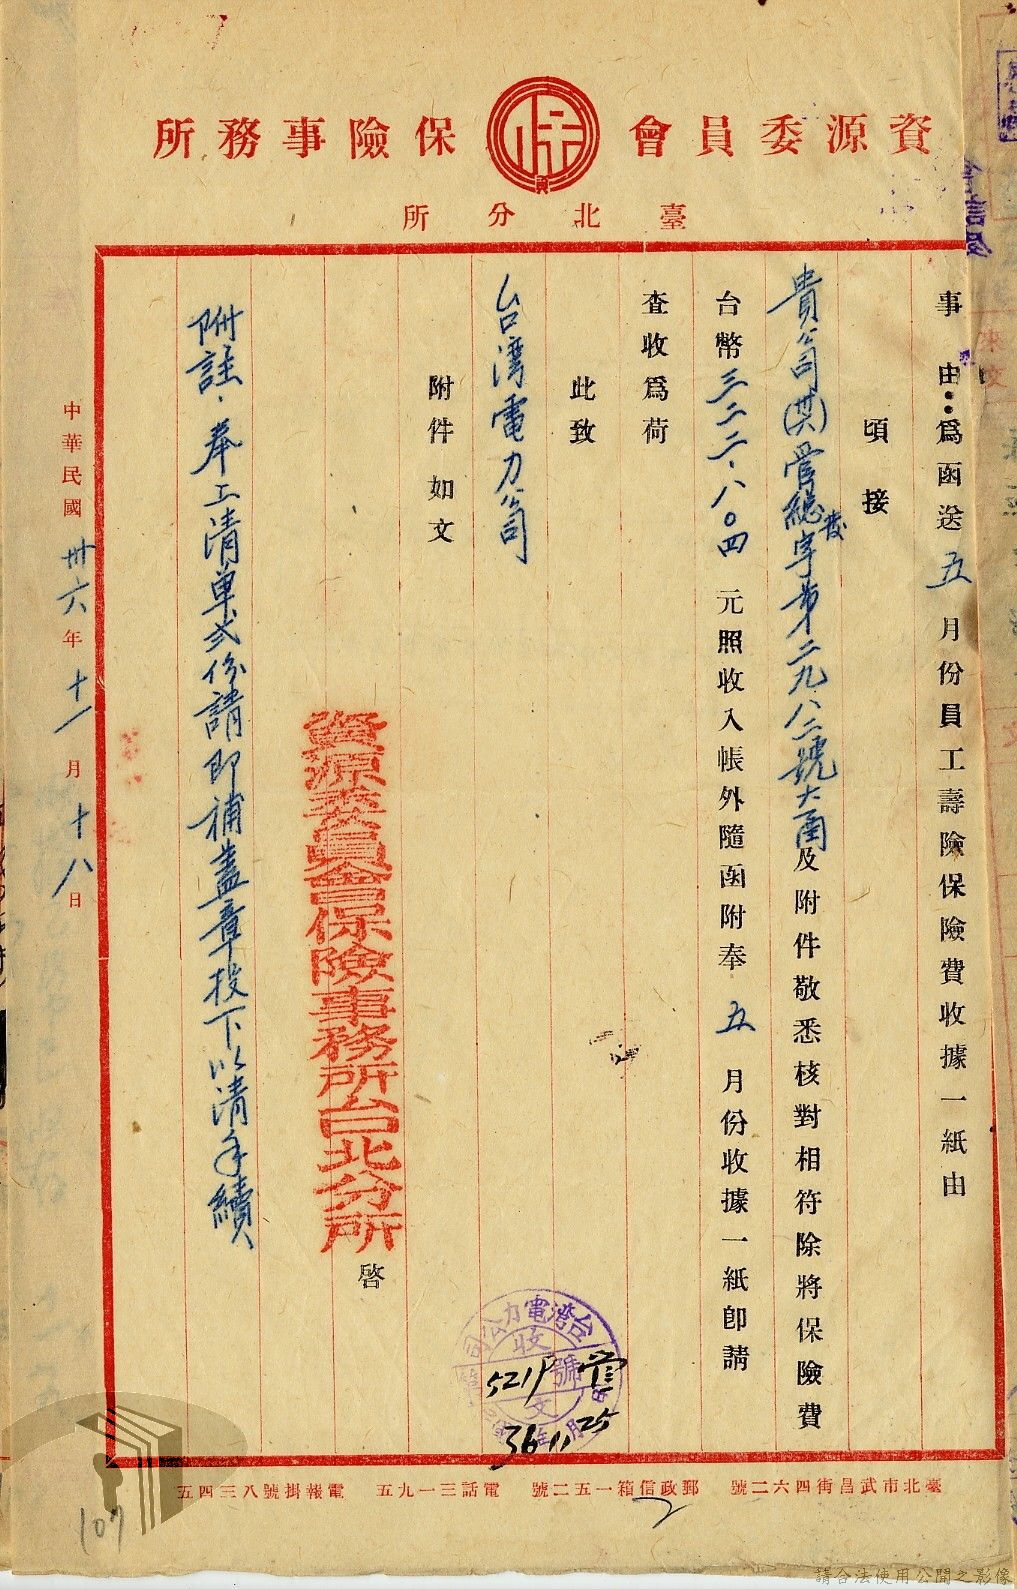 資源委員會 保險事務所
臺北分所
事由：為函送五月份員工壽險保險費收據一紙由
頃接
貴公司(共)管總發字第二九八二號大函及附件敬悉核對相符除將保險費
台幣三二二.八〇四元照收入帳外隨函附奉五月份收據一紙卽請
查收為荷
此致
台湾電力公司
附件如文
資源委員會保險事務所台北分所 啓
附註.奉上清單弍份請即補蓋章投下以清手續
中華民國卅六年十一月十八日
台灣電力公司
收文
號
管
521
36 11 25
臺北市武昌街四六二號 郵政信箱一五二號 電話三一九五 電報掛號八三四五
107
請合法使用公開之影像